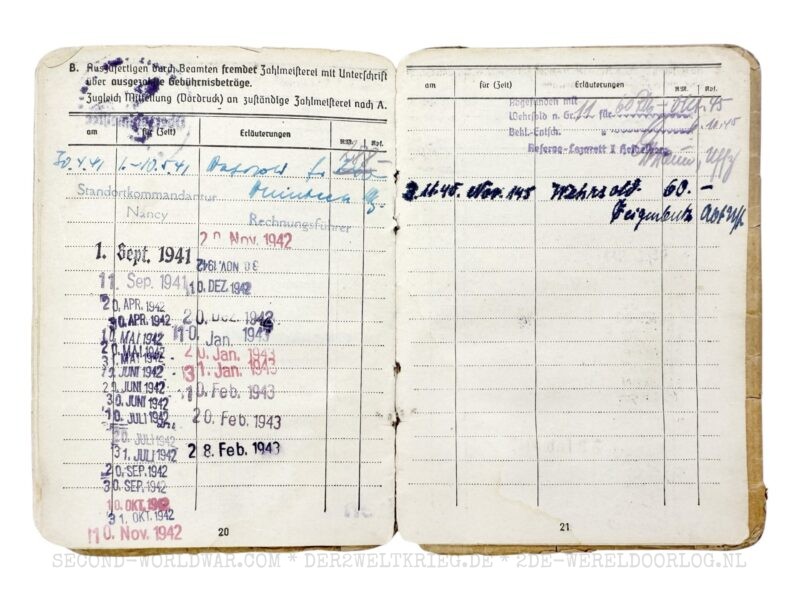 B. Auszufertigen durch Beamten fremder Zahlmeisterei mit Unterschrift
über ausgezahlte Gebührnisbeträge.
Zugleich Mitteilung (Vordruck) an zuständige Zahlmeisterei nach A.
am für (Zeit) Erläuterungen RM. Rpf.
30.4.41 1.–10.5.41
Standortkommandantur
Nancy
Rechnungsführer
20. Nov. 1942
1. Sept. 1941
30. NOV. 1942
11. Sep. 1941
10. DEZ. 1942
20. APR. 1942
30. APR. 1942
20. DEZ. 1942
10. MAI 1942
10. Jan. 1943
20. MAI 1942
20. Jan. 1943
31. MAI 1942
31. Jan. 1943
JUNI 1942
20. JUNI 1942
10. Feb. 1943
30. JUNI 1942
10. JULI 1942
20. Feb. 1943
20. JULI 1942
31. JULI 1942
28. Feb. 1943
20. SEP. 1942
30. SEP. 1942
10. OKT. 1942
31. OKT. 1942
10. Nov. 1942
20
am für (Zeit) Erläuterungen RM. Rpf.
Abgefunden mit
Wehrsold n. Gr. 11 für
Reserve-Lazarett X Heidelberg
Uffz
Nov. 145 Wehrsold 60.–
21
SECOND-WORLDWAR.COM * DER2WELTKRIEG.DE * 2DE-WERELDOORLOG.NL